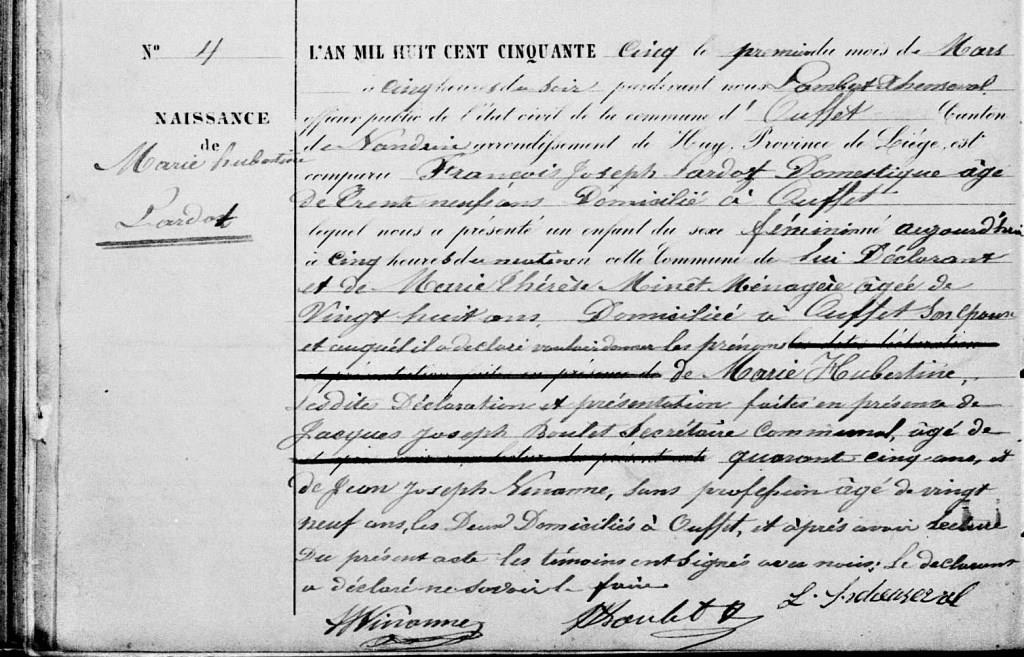 N° 4
NAISSANCE
de
Marie hubertine
Lardot
L'AN MIL HUIT CENT CINQUANTE cinq le premier du mois de Mars
à cinq heures du soir pardevant nous Lambert
officier public de l'état civil de la commune d' Ouffet Canton
de Nandrin arrondissement de Huy, Province de Liége, est
comparu François Joseph Lardot Domestique âgé
de Trente neuf ans Domicilié à Ouffet
lequel nous a présenté un enfant du sexe féminin né aujourd'hui
à cinq heures du matin en cette Commune de lui Déclarant
et de Marie Thérèse Minet Ménagère âgée de
Vingt huit ans, Domiciliée à Ouffet son épouse
et auquel il a declaré vouloir donner les prénoms
de Marie Hubertine,
lesdites Déclaration et présentation faites en présence de
Jacques Joseph Boulet Secrétaire Communal, âgé de
quarant cinq ans, et
de Jean Joseph Ninanne, sans profession âgé de vingt
neuf ans, les Deux Domiciliés à Ouffet, et après avoir lecture
Du présent acte les témoins ont signés avec nous; Le declarant
a déclaré ne savoir le faire
Ninanne
Boulet
L.